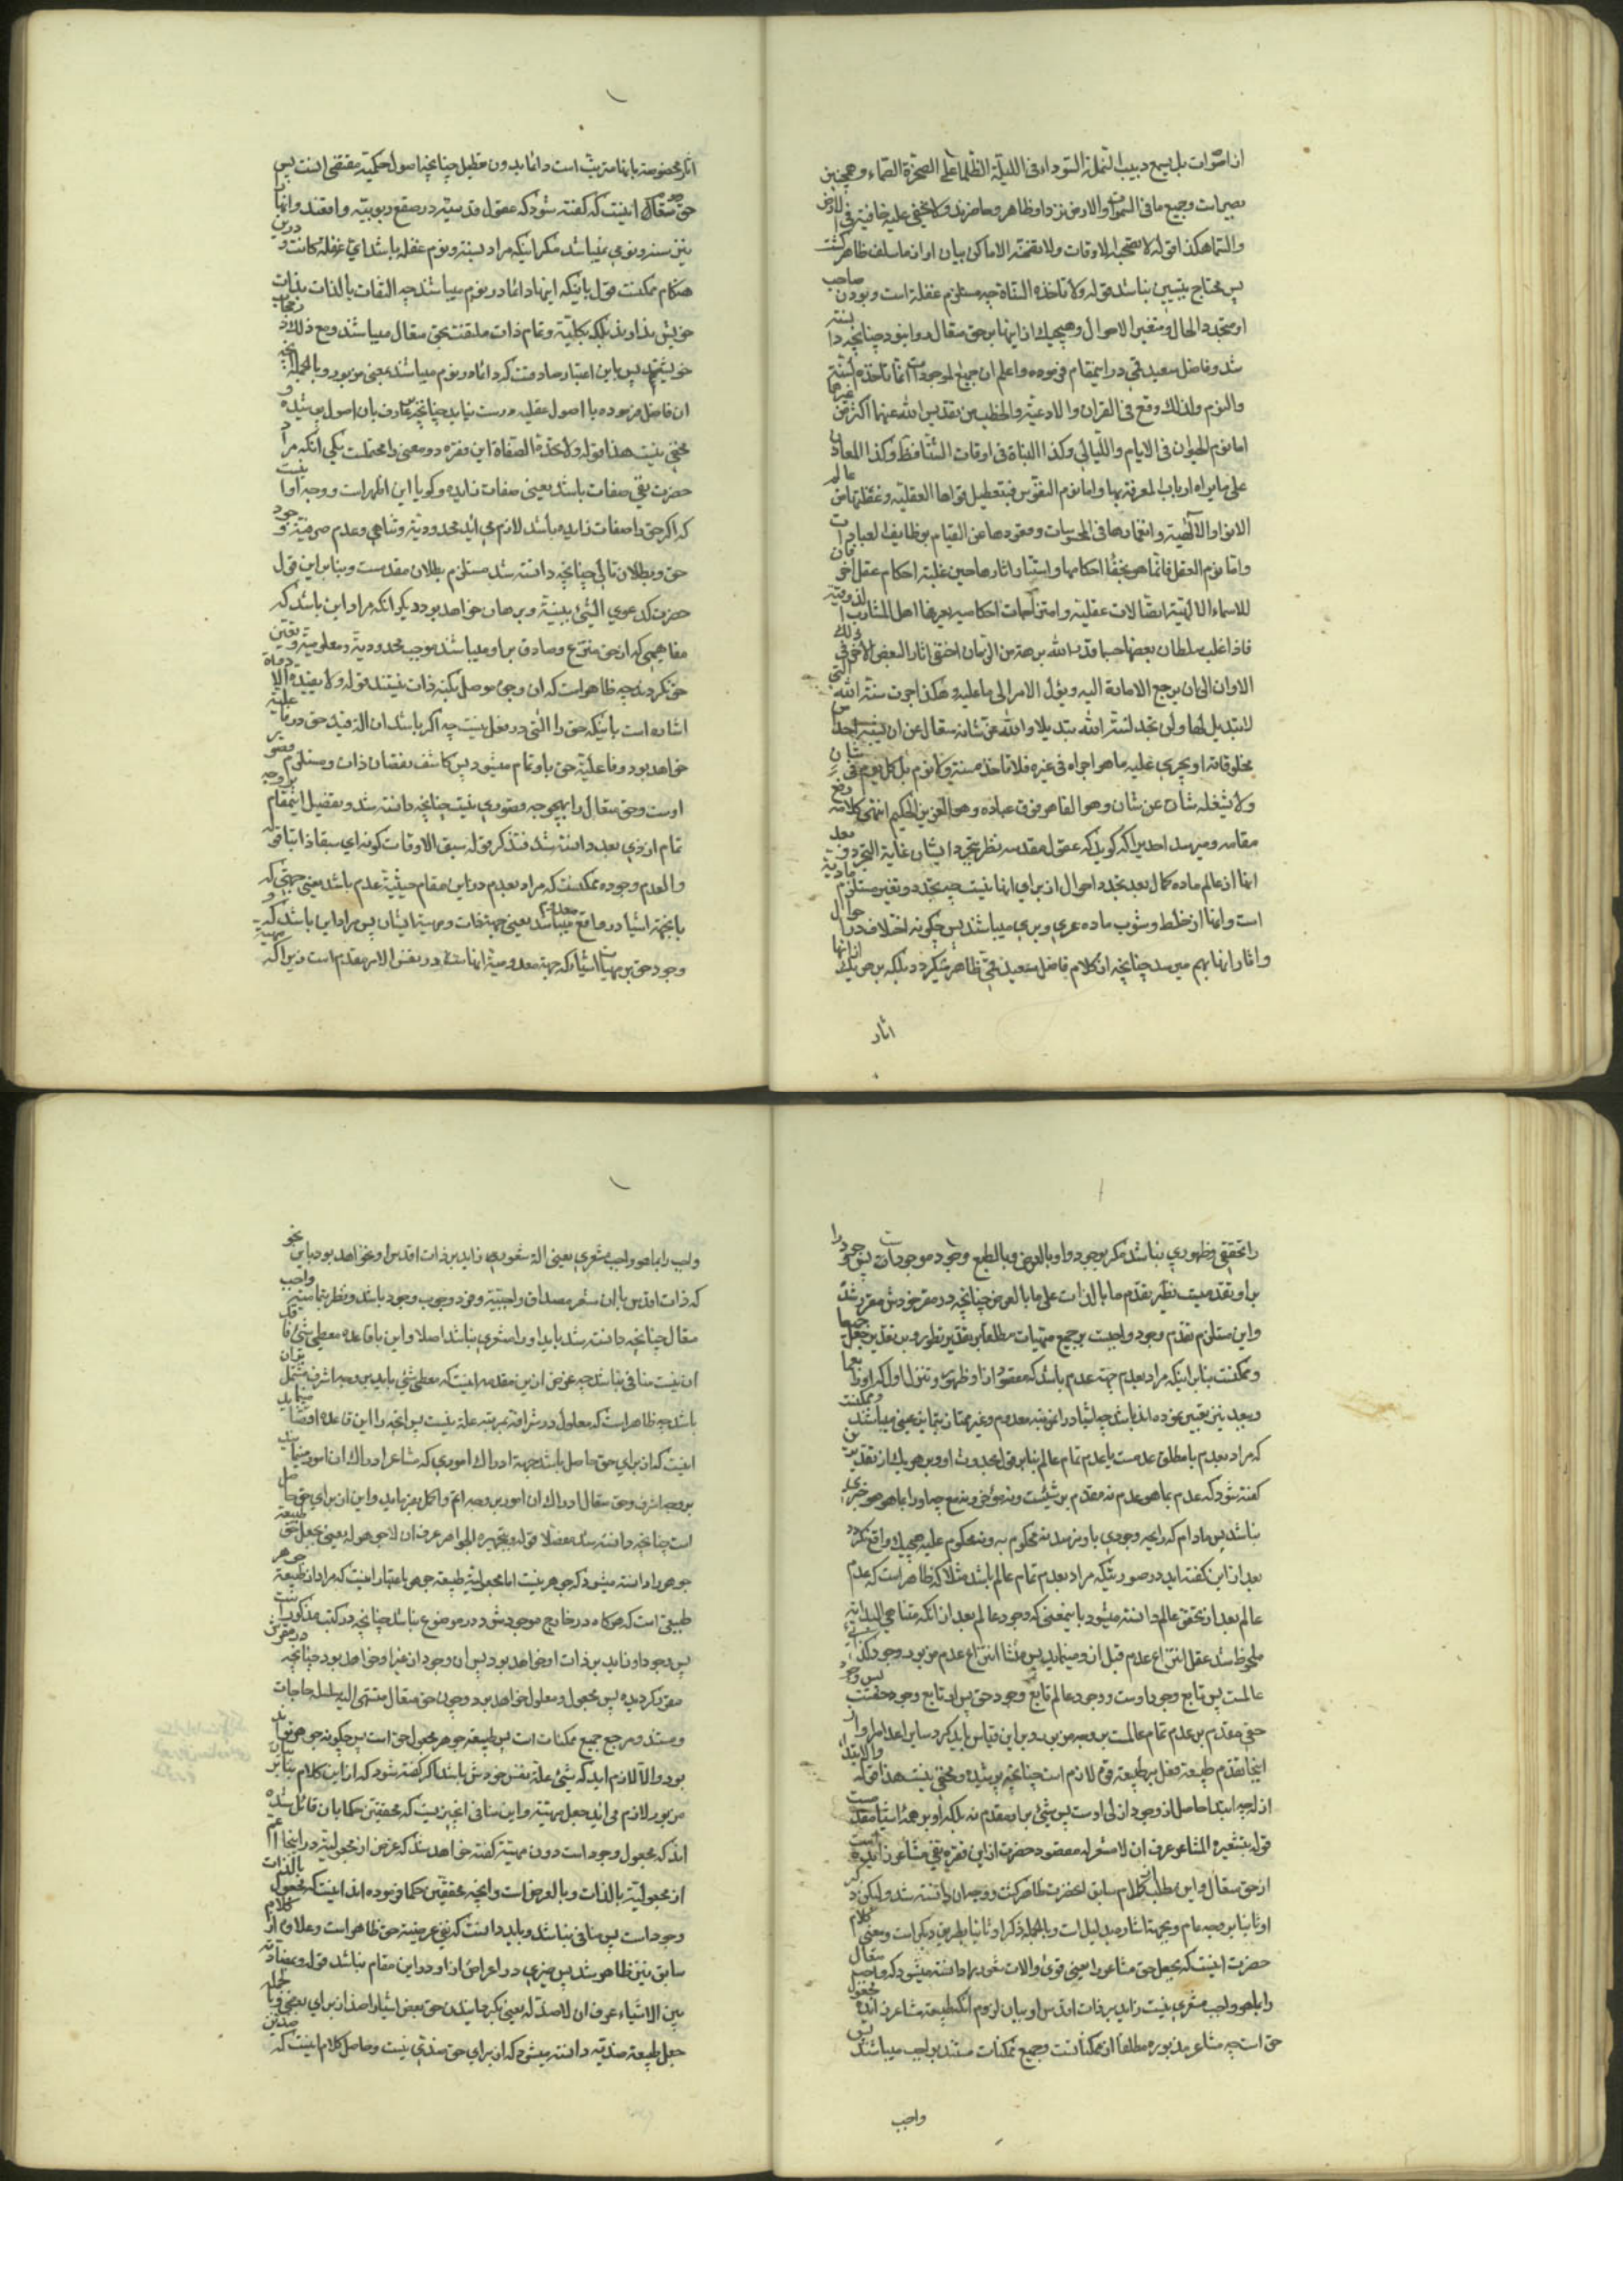 از اصوات بل یسمع دبیب النملة السوداء فی اللیلة الظلماء علی الصخرة الصماء و همچنین
بصیر است و جمیع ما فی السموات والارض نزد او ظاهر و حاضرند ولا یخفی علیه خافیة فی الارض
والسماء هکذا قوله لا تصحبه الاوقات ولا تضمنه الاماکن بیان او از ما سلف ظاهر گشت
پس محتاج بتبیین نباشد قوله ولا تاخذه السناة چه مستلزم غفلة است و بودن صاحب
او متجدد الحال و متغیر الاحوال و هیچیک از اینها بر حق متعال روا نبود چنانچه دانسته
شد و فاضل سعید قمی در اینمقام فرموده واعلم ان جمیع الموجودات انما تاخذه السنة
والنوم ولذلک وقع فی القرآن والادعیة والخطب من تقدیس الله عنهما اکثر من غیرها
اما نوم الحیوان فی الایام واللیالی وکذا النبات فی اوقات الشتاء فظ وکذا المعادن
علی ما یراه ارباب المعرفة بها واما نوم النفوس فبتعطیل قواها العقلیة وغفلتها من عالم
الانوار الالهیة وانغمارها فی المحسوسات وقعودها عن القیام بوظایف العبادات
واما نوم العقل فانما هو بخفاء احکامها واستتار آثارها حین غلبة احکام عقل آخر فان
للاسماء الالهیة اتصالات عقلیة وامتزاجات احکامیة یعرفها اهل المشارب الذوقیة
فاذا غلب سلطان بعضها حسبما قدر الله برهة من الزمان اختفی آثار البعض الآخر فی ذلک
الاوان الی ان یرجع الامانة الیه ویؤل الامر الی ما علیه وهکذا جرت سنة الله التی
لا تبدیل لها ولن تجد لسنة الله تبدیلا والله عز شانه متعال عن ان یشبه احد من
مخلوقاته او یجری علیه ما هو اجراه فی غیره فلا تاخذه سنة ولا نوم بل کل یوم فی شان
ولا یشغله شان عن شان وهو القاهر فوق عباده وهو العزیز الحکیم انتهی کلامه رفع
مقامه و میرسد احدی را که گوید که عقول مقدسه نظر بتجرد ایشان غایة التجرد و بعد
آنها از عالم ماده کمال بعد تجدد احوال از برای آنها نیست چه تجدد و تغیر مستلزم مادیة
است و آنها از خلط و شوب ماده عری و بری میباشند پس چگونه اختلاف در احوال
و آثار آنها بهم میرسد چنانچه از کلام فاضل سعید قمی ظاهر میگردد بلکه بر هر یک از آنها
آثار
آثار مخصوصه بآنها مترتب است دائما بدون تعطیل چنانچه اصول حکمیة مقتضی آنست پس
حق در مقال اینست که گفته شود که عقول قدسیه در صقع ربوبیة واقعند و آنها را
نیز سنه و نومی نمیباشد مگر اینکه مراد بسنه و نوم غفلة باشد ای غفلة کانت در این
هنگام ممکنست قول باینکه اینها دائما در نوم میباشند چه التفات بالذات بذات
خویش ندارند بلکه بکلیة و تمام ذات ملتفت بحق متعال میباشند و مع ذلک در حجاب
خویشتنند پس باین اعتبار صادقست که دائما در نوم میباشند بمعنی مزبور و بالجمله آنچه
آن فاضل فرموده با اصول عقلیه درست نیاید چنانچه بر عارف بآن اصول پوشیده
مخفی نیست هذا قوله ولا تحده الصفاة این فقره دو معنی را محتملست یکی آنکه مراد
حضرت نفی صفات باشد یعنی صفات زایده و گویا این اظهر است و وجه او آنست
که اگر حق را صفات زایده باشد لازم می آید محدودیة و تناهی و عدم صرفیة وجود
حق و بطلان تالی چنانچه دانسته شد مستلزم بطلان مقدمست و بنابر این قول
حضرت کدعوی الشیء ببینة وبرهان خواهد بود دیگر آنکه مراد این باشد که
مفاهیمی که از حق منتزع و صادق بر او میباشند موجب محدودیة و معلومیة و تعین
حق نگردند چه ظاهر است که از وجی موصل بکنه ذات نیستند قوله ولا تفیده الادوات
اشاره است باینکه حق را آلتی در فعل نیست چه اگر باشد آن آلة قید حق در فاعلیة
خواهد بود و فاعلیة حق باو تمام میشود پس کاشف نقصان ذات و مستلزم قصور
اوست و حق متعال را بهیچوجه قصوری نیست چنانچه دانسته شد و تفصیل اینمقام بر وجه
تمام از ذی بعد دانسته شد فتذکر قوله سبق الاوقات کونه ای سبقا ذاتیا قوله
والعدم وجوده ممکنست که مراد بعدم در این مقام حیثیة عدم باشد یعنی جهتی که
بآنجهة اشیا در واقع معدوم میباشند یعنی جهة ذات و مهیة ایشان پس مراد این باشد که
وجود حق بر مهیات اشیا که جهة معدومیة آنهاست در نفس الامر مقدم است زیرا که مهیة
را تحققی و ظهوری نباشد مگر بوجود و او بالعرض و بالطبع وجود موجودات پس وجود را
بر او تقدمیست نظیر تقدم ما بالذات علی ما بالعرض چنانچه در مقر خودش مقرر شد
و این مستلزم تقدم وجود واجبست بر جمیع مهیات مطلقا بر تقدیر تطور و بر تقدیر جعل
و ممکنست بنابر اینکه مراد بعدم جهة عدم باشد که مقصود از او ظهور و تنزل اول که او را
و بعدم نیز تعبیر نموده اند باشد چه اشیا در آن مرتبه معدوم و غیر ممتازند و ممکنست
که مراد بعدم یا مطلق عدمست یا عدم تمام عالم بنابر قول بحدوث او و بر هر یک از تقدیرین
گفته شود که عدم بما هو عدم نه مقدم بر شیئست و نه مؤخر و نه مع چه او را بما هو هو خبری
نباشد پس مادام که رایحه وجودی باو نرسد نه محکوم به و نه محکوم علیه هیچیک واقع نگردد
بعد از این گفته آید در صورتیکه مراد بعدم تمام عالم باشد مثلا که ظاهر است که عدم
عالم بعد از تحقق عالم دانسته میشود باینمعنی که وجود عالم بعد از آنکه متناهی البدایة
ملحوظ شد عقل انتزاع عدم قبل از او مینماید پس منشأ انتزاع عدم مزبور وجود
عالمست پس تابع وجود اوست و وجود عالم تابع وجود حق پس او تابع وجود حقست پس وجود
حق مقدم بر عدم تمام عالمست بر وجه مزبور و بر این قیاس باید کرد سایر اعدام را و از
اینجا تقدم طبیعة فعل بر طبیعة قوه لازم است چنانچه پوشیده و مخفی نیست هذا قوله والابتداء
ازله چه ابتدا حاصل از وجود ازلی اوست پس شیئی بر او مقدم نه بلکه او بر همه اشیا مقدمست
قوله بتشعیره المشاعر عرف ان لا مشعر له مقصود حضرت از این فقره نفی مشاعر زایده است
از حق متعال و این مطلب از کلام سابق آنحضرت ظاهر گشت و وجه آن دانسته شد ولیکن ذکر
او ثانیا بر وجه عام و بجهة اشاره بدلیل است و بالجمله ذکر او ثانیا بطریق دیگر است و معنی کلام
حضرت اینست که بجعل حق مشاعر را یعنی قوی و آلات شعوریه را دانسته میشود که واجب متعال
را بما هو واجب مشعری نیست زاید بر ذات اقدس او بیان لزوم آنکه طبیعة مشاعر زایده مجعول
حق است چه مشاعر مزبوره مطلقا از ممکناتست و جمیع ممکنات مستند بواجب میباشند پس
واجب
واجب را بما هو واجب مشعری یعنی آلة شعوری زاید بر ذات اقدس او نخواهد بود
که ذات اقدس با آن مشعر مصداق واجبیة و فرد وجوب وجود باشد و نظر بتمامیت واجب
متعال چنانچه دانسته شد باید او را مشعری نباشد اصلا و این با قاعده معطی شیء فاقد
آن نیست منافی نباشد چه غرض از این مقدمه اینست که معطی شیء باید بر وجه اشرف مشتمل بر آن
باشد چه ظاهر است که معلول در شرافة بمرتبه علة نیست پس آنچه را این قاعده اقتضا مینماید
اینست که از برای حق حاصل باشد جهة ادراک اموری که مشاعر ادراک آن امور مینمایند
بر وجه اشرف و حق متعال ادراک آن امور بر وجه اتم و اکمل میفرماید و این از برای حق حاصل
است چنانچه دانسته شد مفصلا قوله و بتجهیره الجواهر عرف ان لا جوهر له یعنی بجعل حق طبیعة
جوهر را دانسته میشود که جوهر نیست اما مجعولیة طبیعة جوهر باعتبار اینست که مراد از طبیعة جوهر
طبیعتی است که هرگاه در خارج موجود شود در موضوع نباشد چنانچه در کتب مذکور است
پس وجود او زاید بر ذات او خواهد بود پس آن وجود از غیر او خواهد بود چنانچه در مقرش
مقرر گردیده پس مجعول و معلول خواهد بود و چون حق متعال منتهی الیه سلسله حاجات
و مستند و مرجع جمیع ممکنات است پس طبیعة جوهر مجعول حق است پس چگونه جوهر تواند
بود و الا لازم آید که شیء علة نفس خودش باشد اگر گفته شود که از این کلام بنابر بیان
مزبور لازم می آید جعل مهیة و این منافی آنچیزیست که محققین حکما بآن قائل شده
اند که مجعول وجود است دون مهیة گفته خواهد شد که غرض از مجعولیة در اینجا اعم
از مجعولیة بالذات و بالعرض است و آنچه محققین حکما فرموده اند اینست که مجعول بالذات
وجود است پس منافی نباشد و باید دانست که نفی عرضیة حق ظاهر است و علاوه از کلام
سابق نیز ظاهر شد پس ضرری در اعراض از او در این مقام نباشد قوله و بمضادته
بین الاشیاء عرف ان لا ضد له یعنی بگردانیدن حق بعض اشیا را ضد از برای بعضی و بالجمله
جعل طبیعة ضدیة دانسته میشود که از برای حق ضدی نیست و حاصل کلام اینست که ضدین